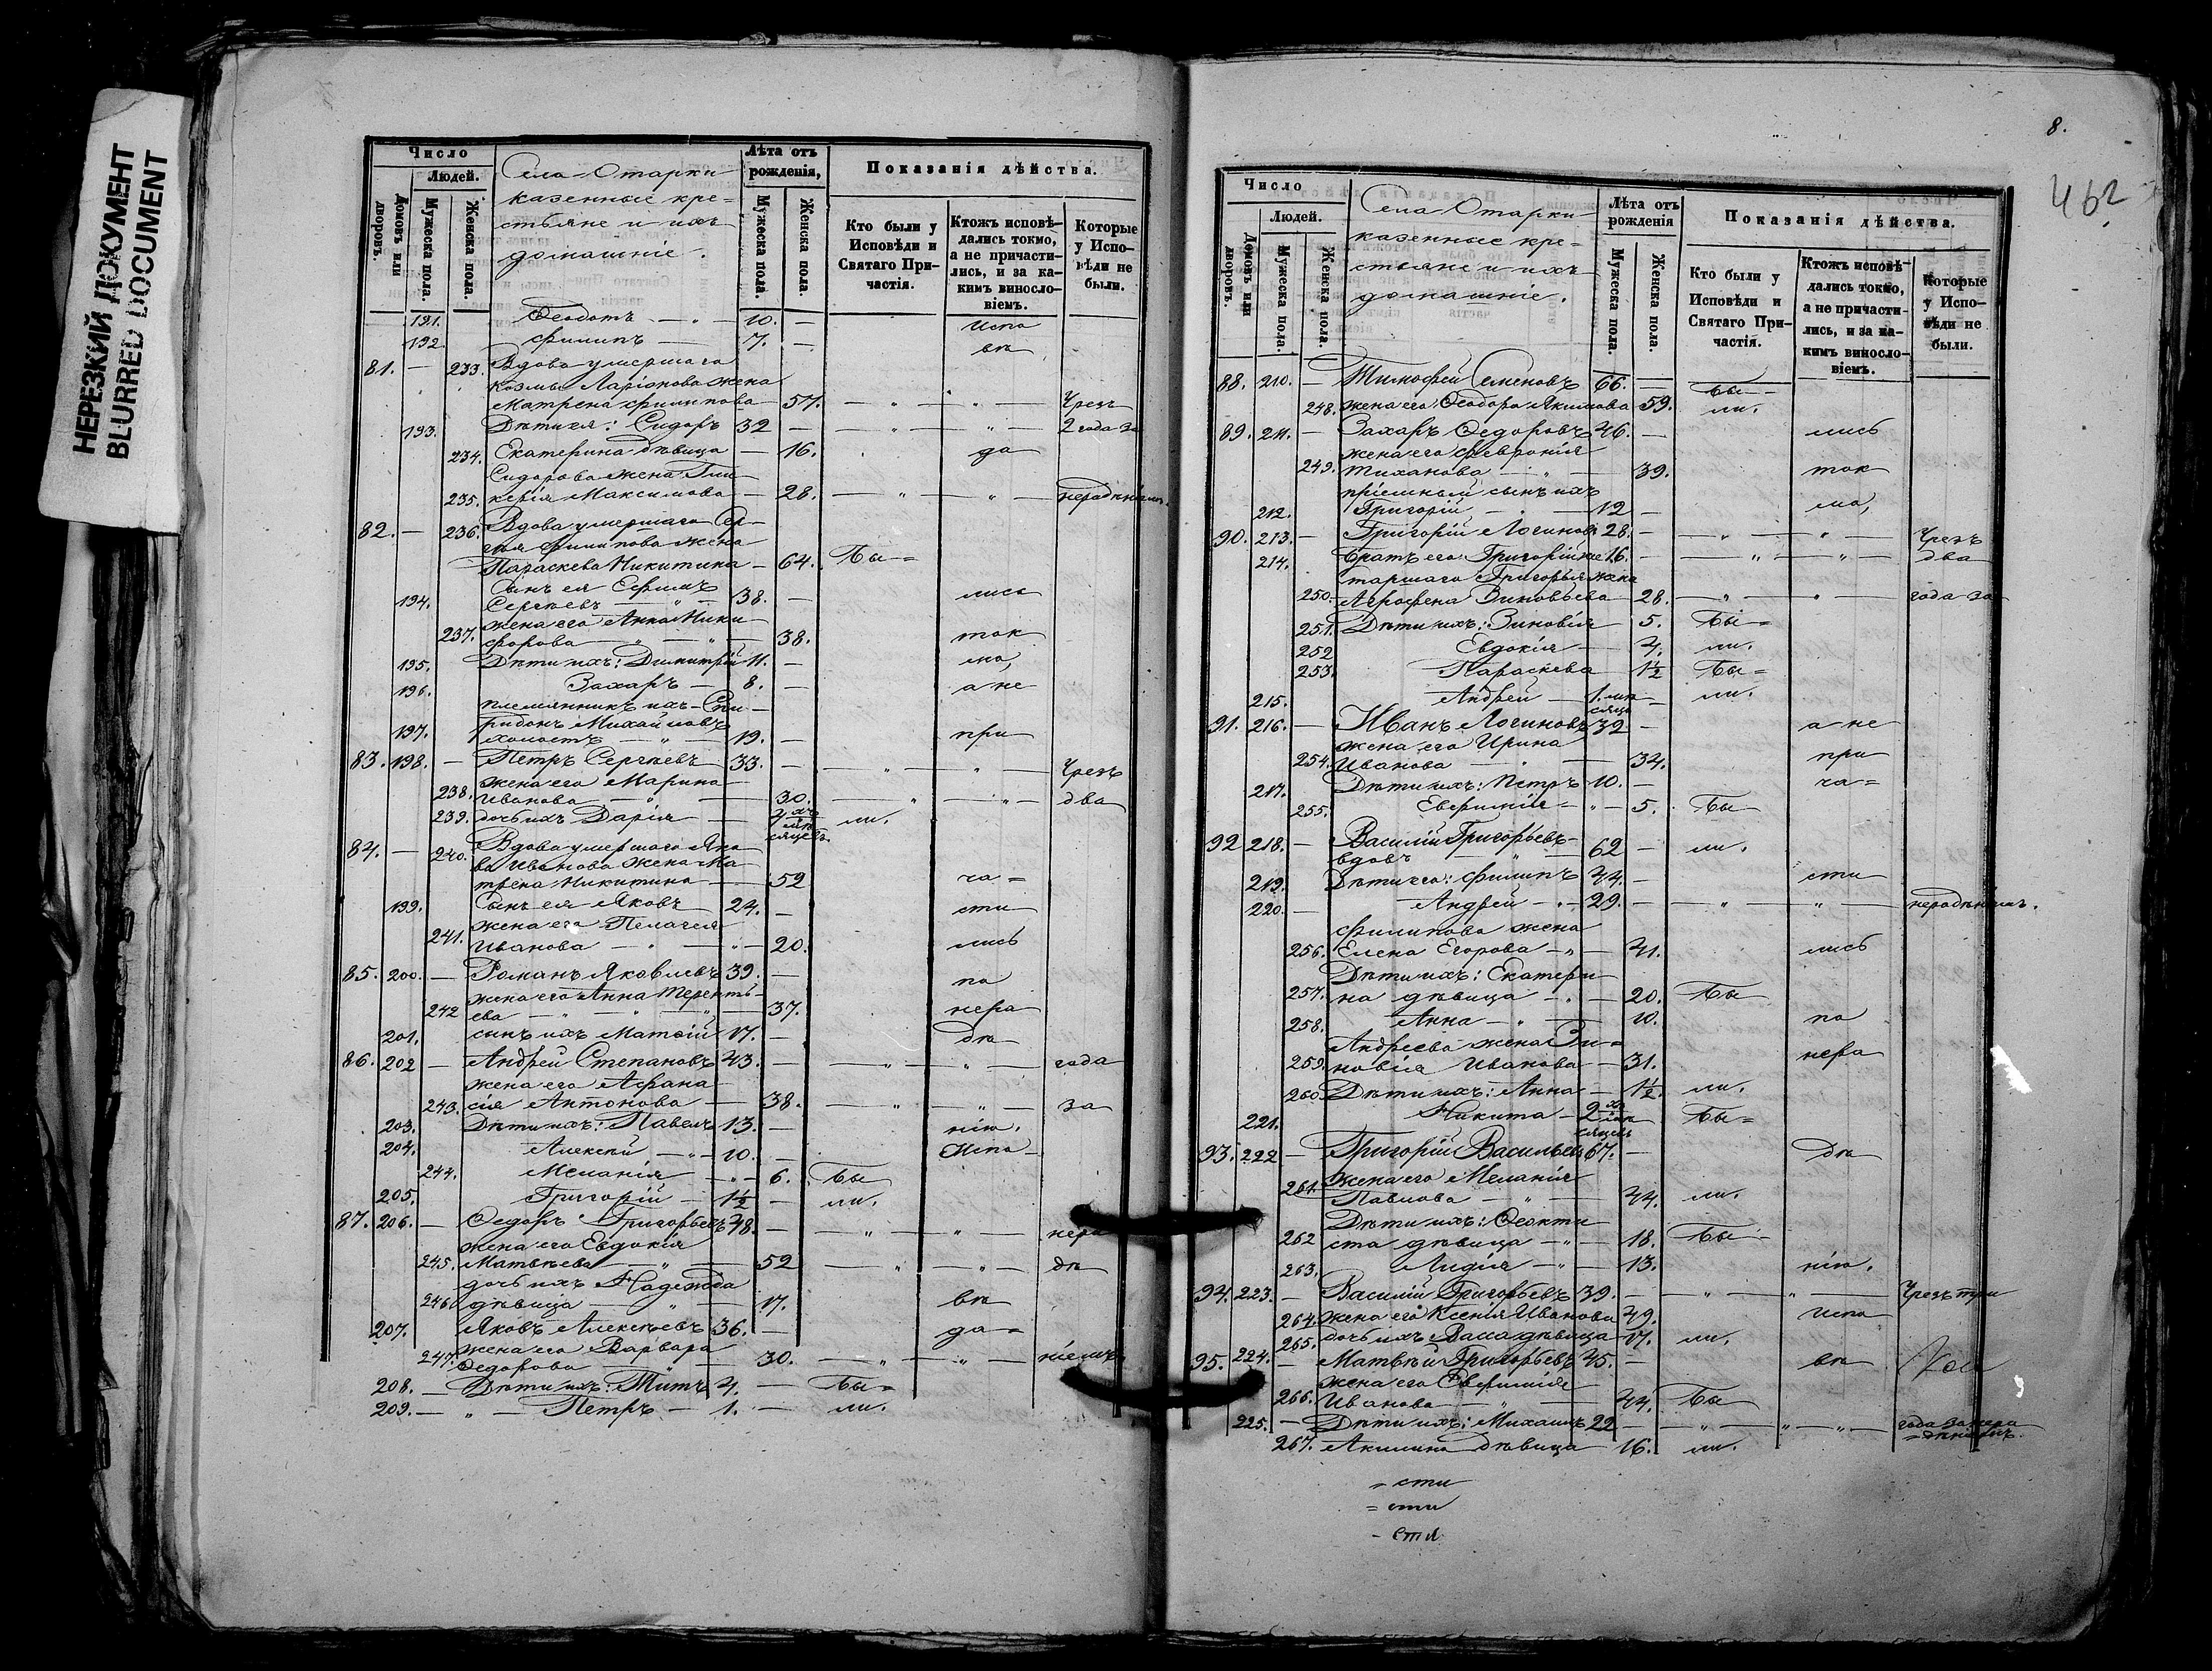 НЕРЕЗКИЙ ДОКУМЕНТ
BLURRED DOCUMENT
Число
Людей.
Домовъ или дворовъ.
Мужеска пола.
Женска пола.
Села Отарки
казенные кре-
стьяне и ихъ
домашніе.
Лѣта отъ рожденія,
Мужеска пола.
Женска пола.
Показанія дѣйства.
Кто были у Исповѣди и Святаго При-частія.
Ктожъ исповѣ-дались токмо, а не причасти-лись, и за ка-кимъ винослo-віемъ.
Которые у Испо-вѣди не были.
191. Ѳеодотъ — 10. — испо
192. Филипъ — 7. — вѣ
81. — 233. Вдова умершаго
Козмы Ларіонова жена
Матрена Филипова — 57. — Чрезъ
193. Дѣти ея: Сидоръ 32 — 2 года за
234. Екатерина дѣвица — 16. да
Сидорова жена Гли
235. керія Максимова — 28. — нерадѣніемъ.
82. — 236. Вдова умершаго Сер-
гія Филипова жена
Параскева Никитина — 64. Бы=
Сынъ ея Ефимъ
194. Сергѣевъ — 38. — лись
жена его Анна Ники
237. форова — 38. ток
195. Дѣти ихъ: Димитрій 11. — мо,
196. Захаръ — 8. — а не
племянникъ ихъ Спи-
197. ридонъ Михайловъ
холостъ — 19. — при
83. 198. — Петръ Сергѣевъ 33. — Чрезъ
жена его Марина
238. Иванова — 30. — два
239. дочь ихъ Дарія — 4хъ мѣ сяцевъ. ли.
84. — 240. Вдова умершаго Яко
ва Иванова жена Ма
трена Никитина — 52 ча=
199. Сынъ ея Яковъ 24. — сти
жена его Пелагея
241. Иванова — 20. лись
85. 200. — Романъ Яковлевъ 39. — по
жена его Анна Терентъ-
242 ева — 37. нера
201. сынъ ихъ Матѳій 17. — дѣ
86. 202 — Андрей Степановъ 43. — года
жена его Афана
243. сія Антонова — 38. — за
203. Дѣти ихъ: Павелъ 13. — нію.
204. Алексѣй — 10. — Испо
244. Меланія — 6. Бы
205. Григорій — 1½ — ли.
87. 206. — Ѳедоръ Григорьевъ 48. — нера
жена его Евдокія
245. Матвѣева — 52 — дѣ
дочь ихъ Надежда
246. дѣвица — 17. вѣ
207. Яковъ Алексѣевъ 36. — да=
жена его Варвара
247. Ѳедорова — 30. — ніемъ
208. — Дѣти ихъ: Титъ 4. — Бы=
209. — Петръ — 1. — ли.
8.
462
Число
Людей.
Домовъ или дворовъ.
Мужеска пола.
Женска пола.
Села Отарки
казенные кре=
стьяне и ихъ
домашніе.
Лѣта отъ рожденія
Мужеска пола.
Женска пола.
Показанія дѣйства.
Кто были у Исповѣди и Святаго При-частія.
Ктожъ исповѣ-дались токмо, а не причасти-лись, и за ка-кимъ винослo-віемъ.
Которые у Испо-вѣди не были.
88. 210. — Тимофей Семеновъ 66. — Бы
248. жена его Ѳеодора Якимова 59. ли.
89. 211. — Захаръ Ѳедоровъ 46. — лись
жена его Февронія
249. Тиханова — 39. ток
пріемный сынъ ихъ
212. Григорій — 12 — мо,
90. 213. — Григорій Логиновъ 28. — Чрезъ
214. братъ его Григорій же 16. — два
таршаго Григорья жена
250. Агрофена Зиновьева — 28. — года за
251. Дѣти ихъ: Зиновія 5. Бы=
252 Евдокія — 4. ли.
253. Параскева 1½ Бы=
215. Андрей — 1. мѣ сяца — ли.
91. 216. — Иванъ Логиновъ 39 — а не
жена его Ирина
254. Иванова — 34. при
217. Дѣти ихъ: Петръ 10. — ча=
255. Евфимія — 5. Бы
92 218. — Василій Григорьевъ
вдовъ — 62 — ли.
219. Дѣти его: Филипъ 44. — сти
220. — Андрей — 29. — нерадѣніемъ.
Филипова жена
256. Елена Егорова — 41. лись
Дѣти ихъ: Екатери
257. на дѣвица — 20. Бы
258. Анна — 10. по
Андреева жена Зи=
259. новія Иванова — 31. нера
260. Дѣти ихъ: Анна — 1½. ли.
221. Никита — 2хъ мѣ сяцевъ Бы=
93. 222 — Григорій Васильевъ 67. — дѣ
жена его Меланія
261. Павлова — 44. ли.
Дѣти ихъ: Ѳеокти
262 ста дѣвица — 18. Бы
263. Лидія — 13. нію.
94. 223. — Василій Григорьевъ 39. — Чрезъ три
264. жена его Ксенія Иванова 49. испо
265. дочь ихъ Васса дѣвица — 17. ли.
95. 224. — Матвѣй Григорьевъ 45. — вѣ
жена его Евфимія
266. Иванова — 44. Бы
225. — Дѣти ихъ: Михаилъ 22 — года за нера
=дѣніемъ.
267. Акилина дѣвица 16. ли.
= сти
= сти
- стя